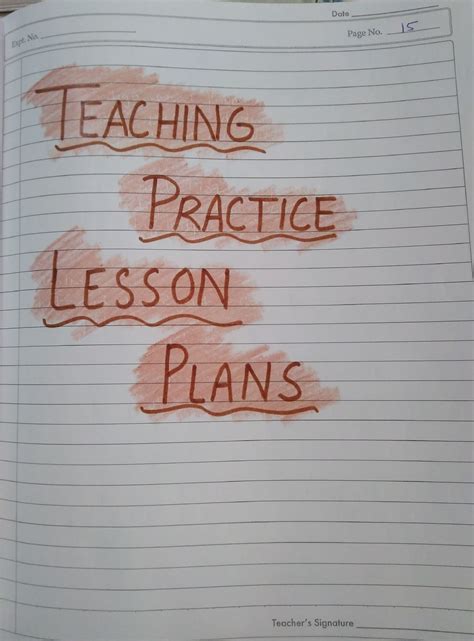 Date
Expt. No.
Page No. 15
TEACHING
PRACTICE
LESSON
PLANS
Teacher's Signature